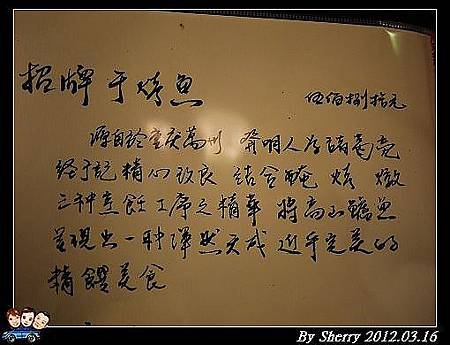 招牌于烤鱼 伍佰捌拾元
源自於重庆萬州 發明人为諸葛亮
经于記精心改良 結合醃 烤 燉
三种烹飪工序之精華 將高山鱸魚
呈現出一种渾然天成 近乎完美的
精饌美食
By Sherry 2012.03.16